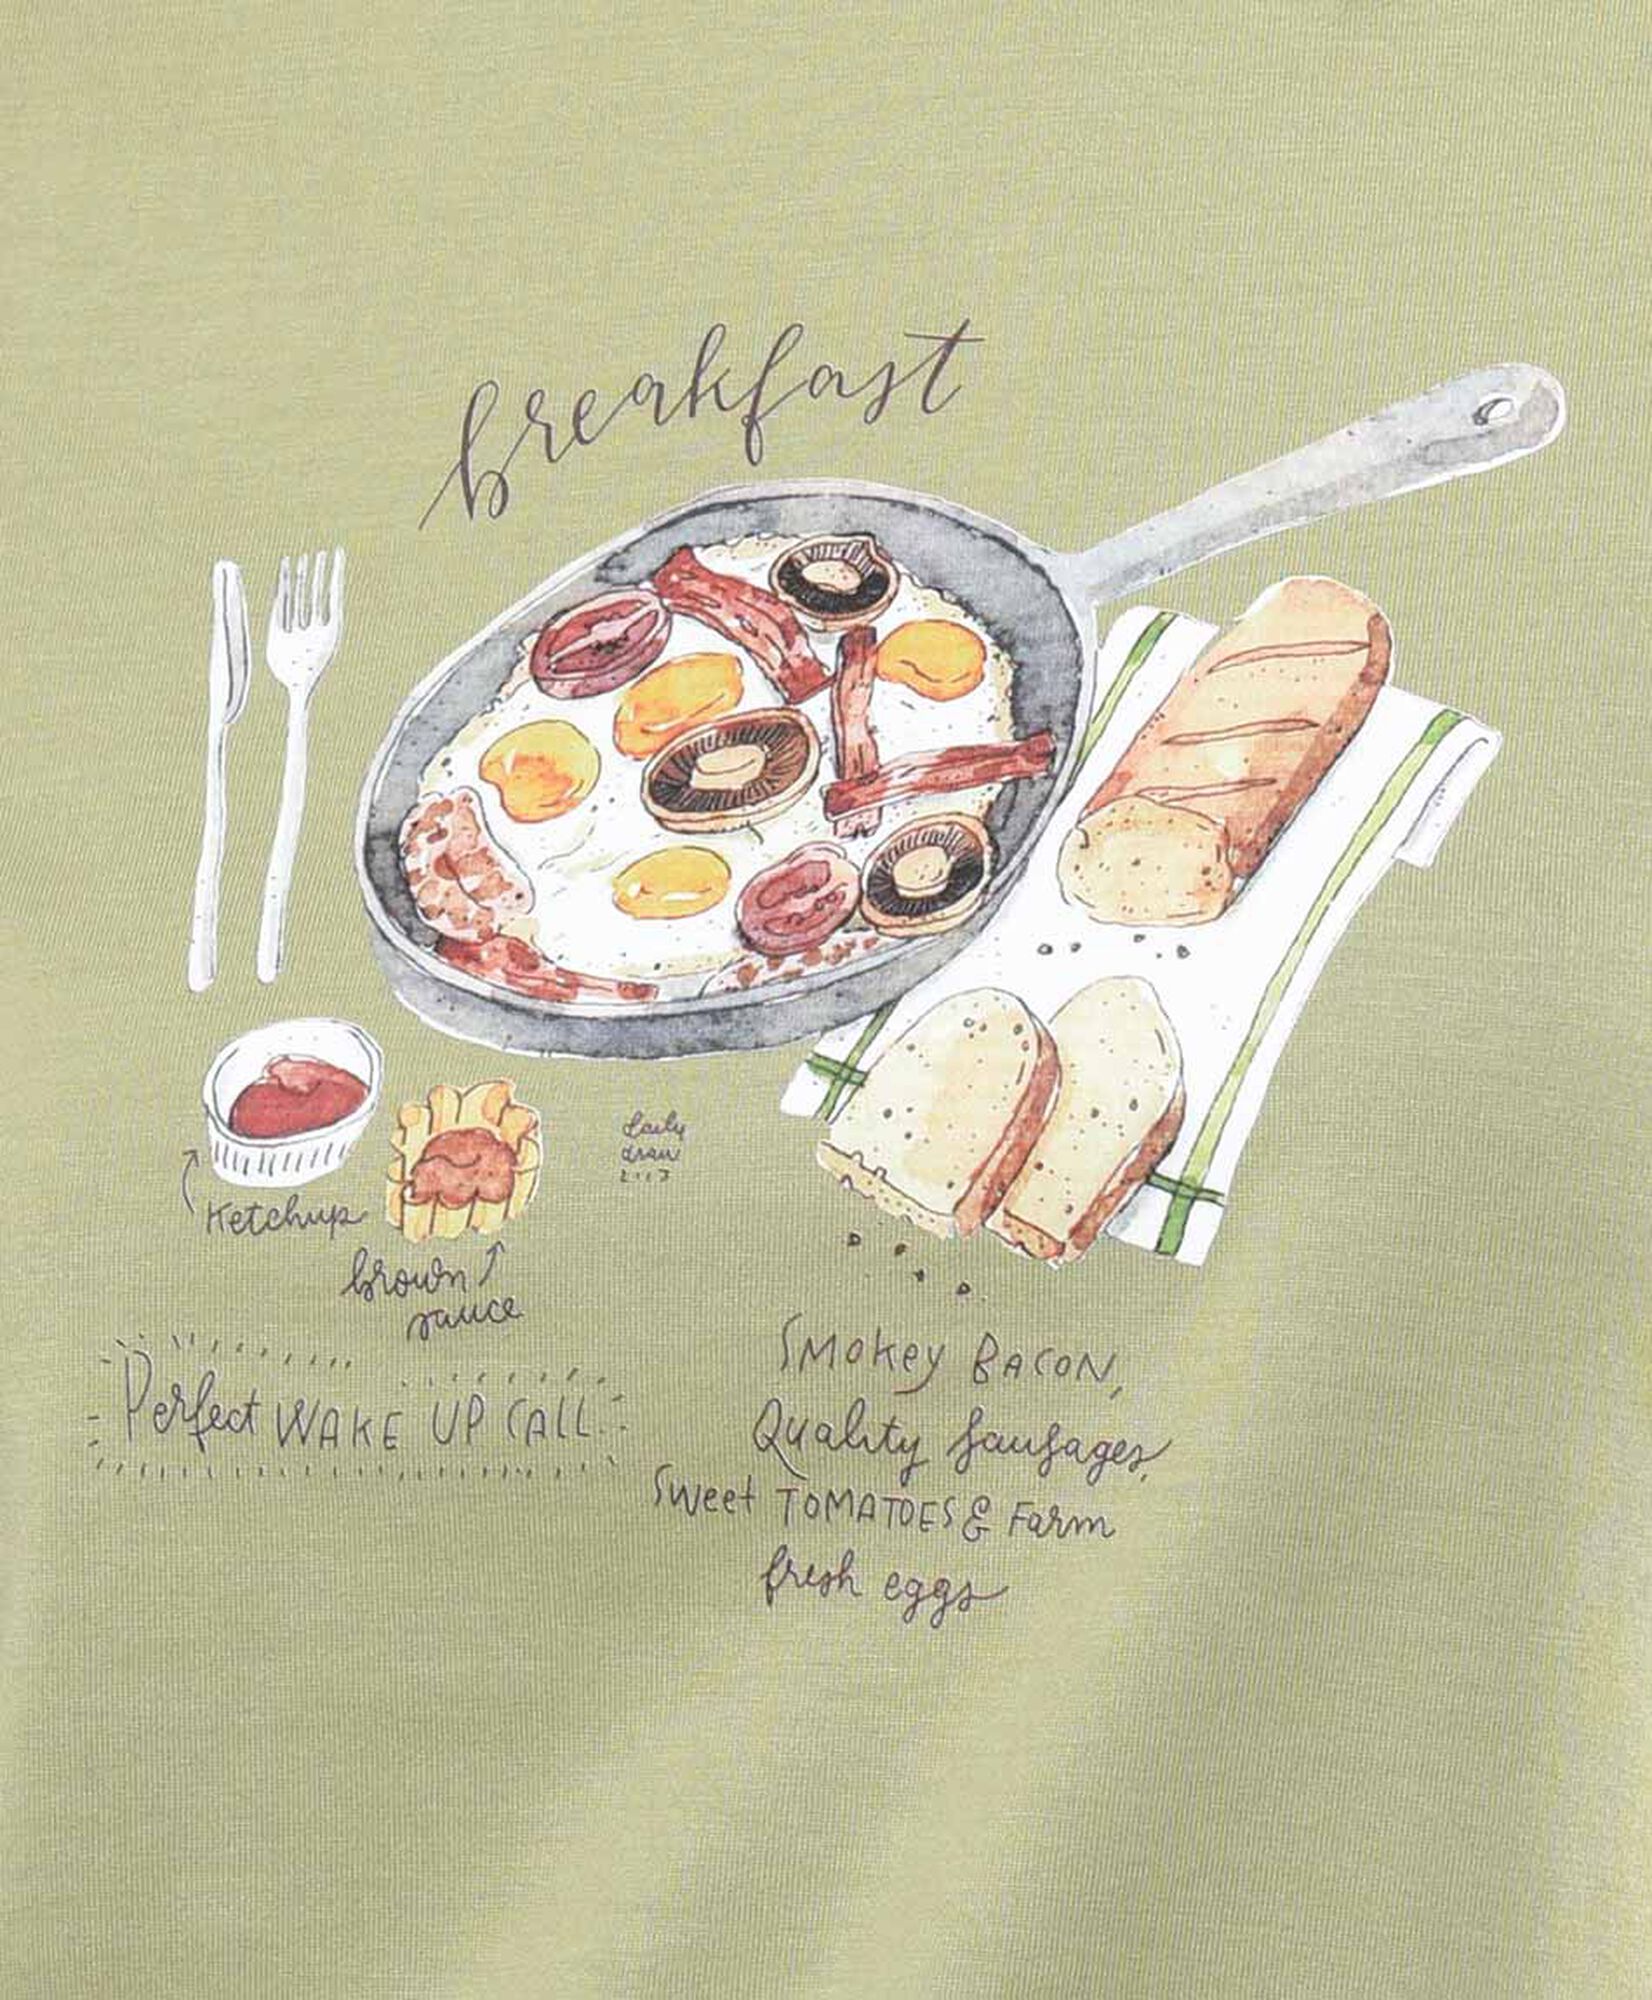 breakfast
Ketchup
brown
sauce
Perfect WAKE UP CALL
SMOKEY BACON,
Quality Sausages,
Sweet TOMATOES & Farm
fresh eggs